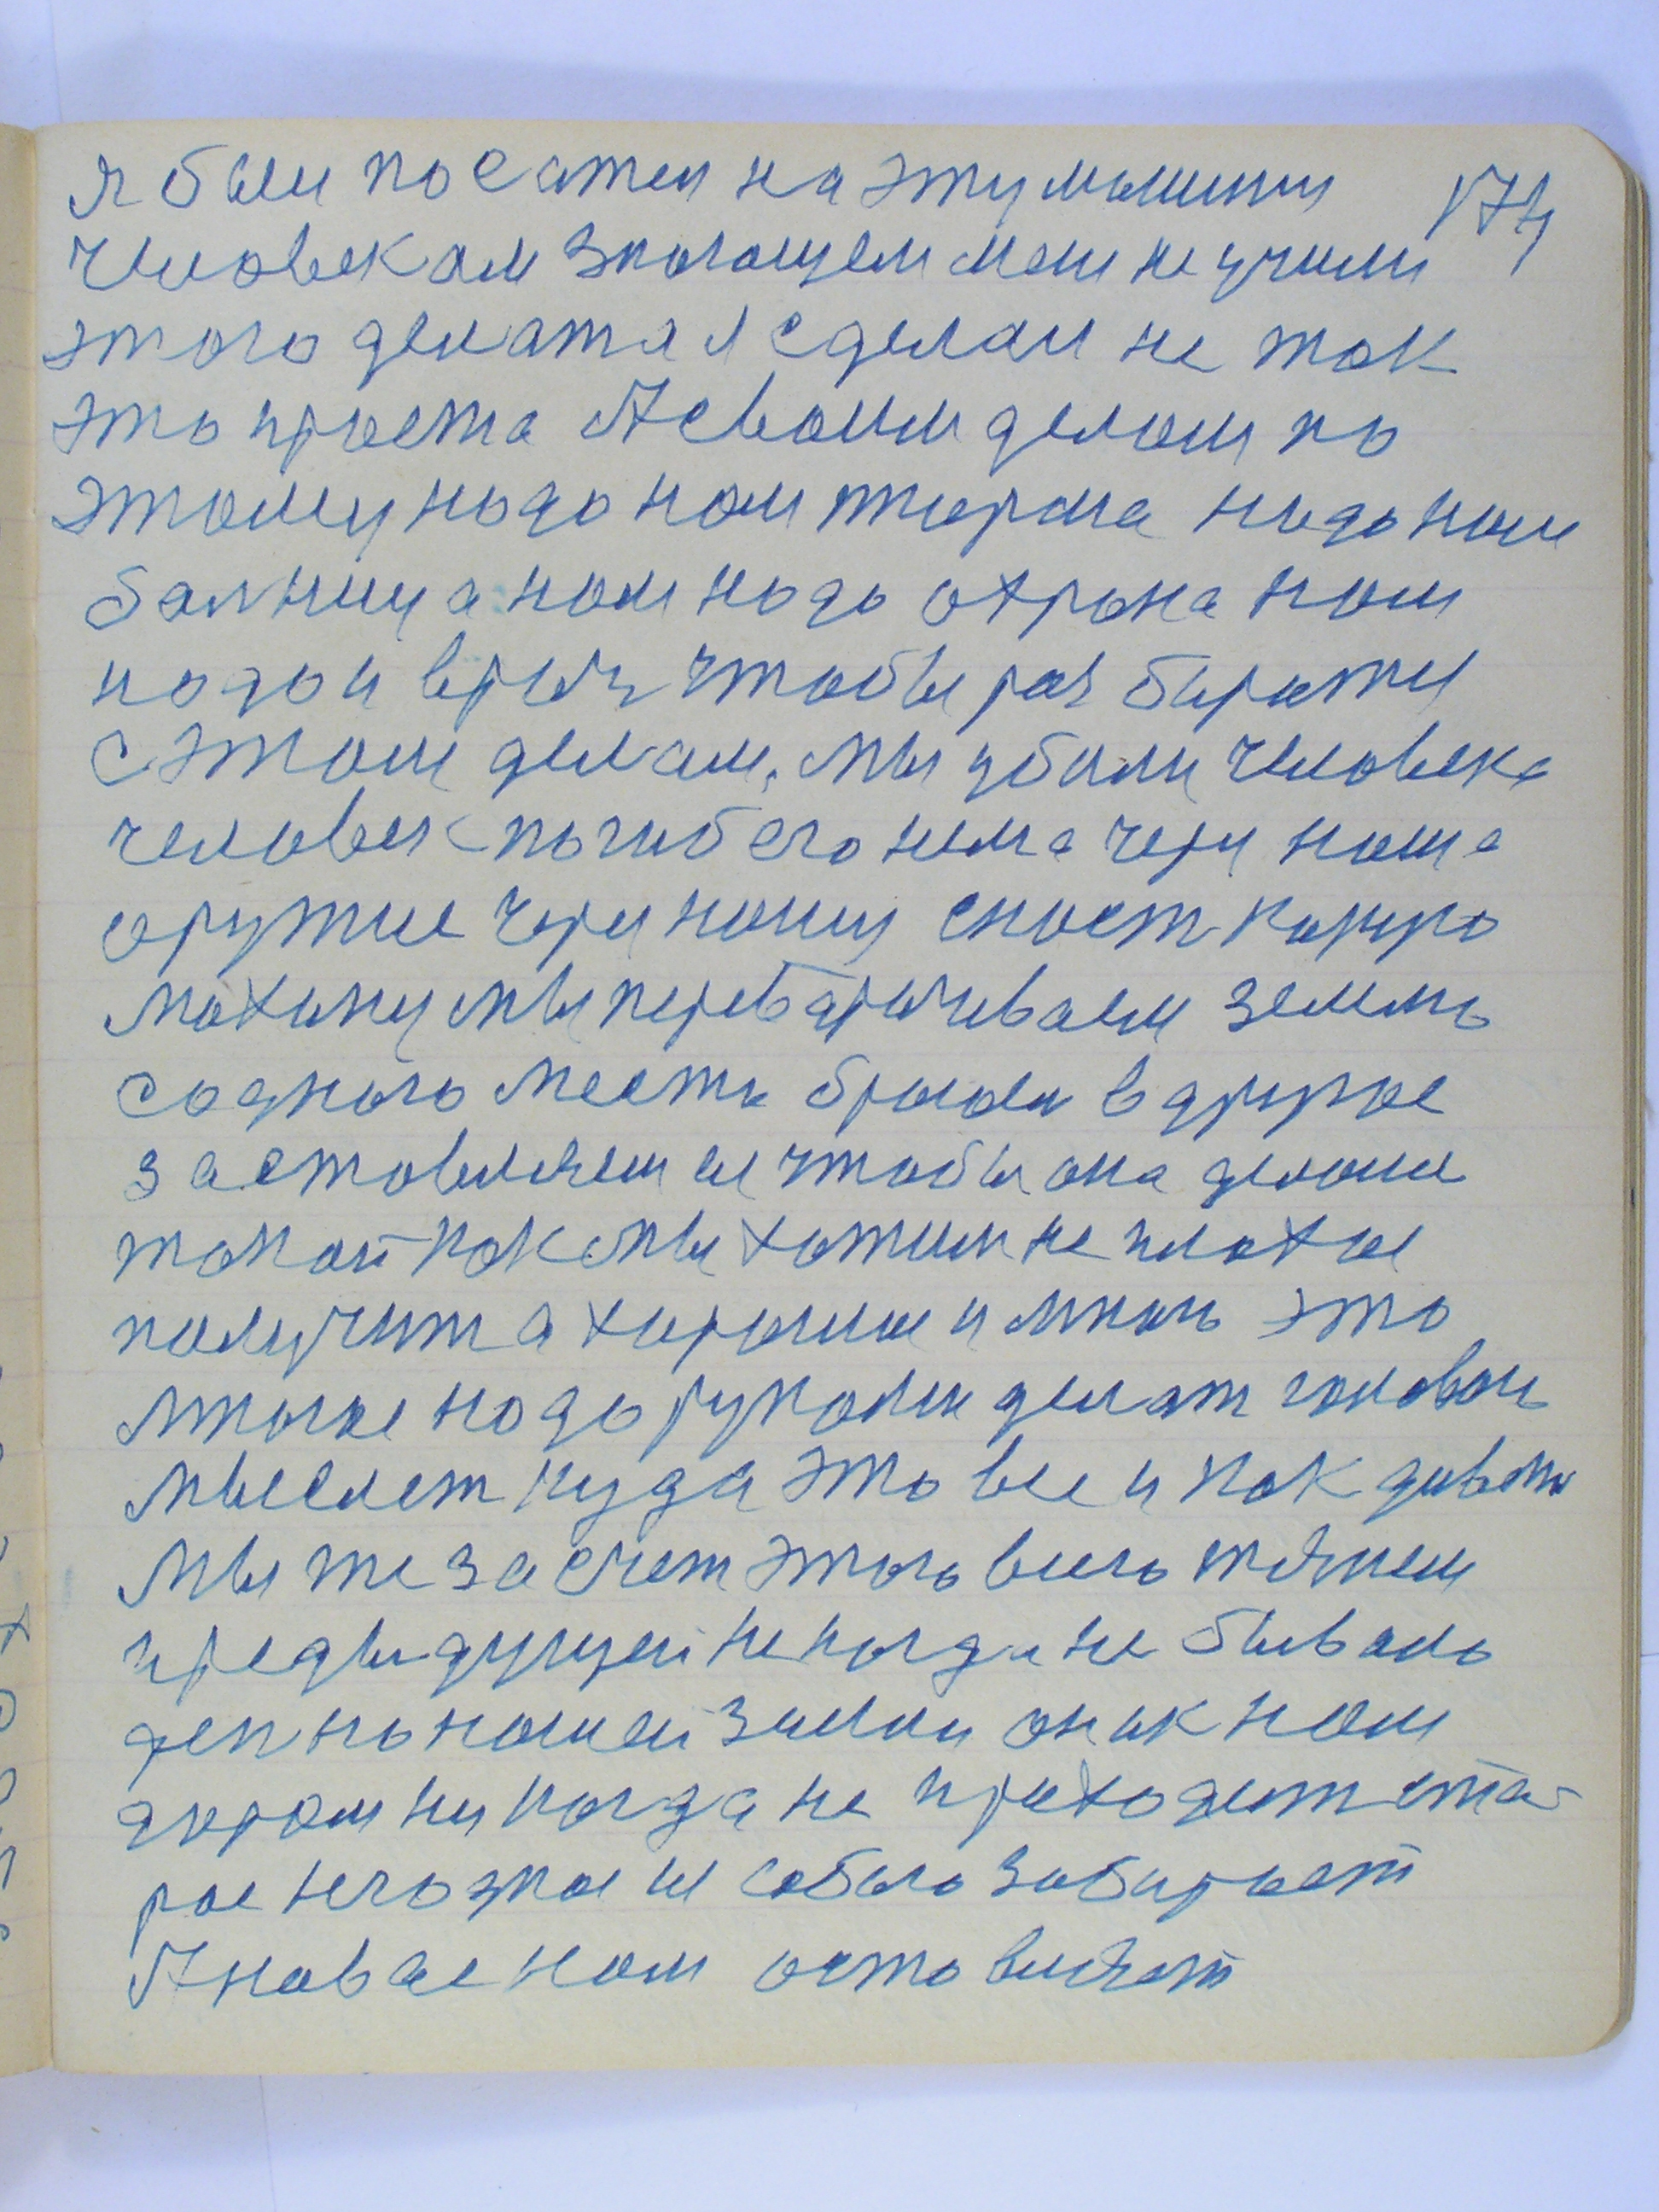 я был посатен на эту машину 174
человекам знающем мене не учили
этого делат а я сделал не так
это проста А своим делом по
этому надо нам тюрма надо нам
балница нам надо охрана нам
надо и врач чтобы разбиратся
с этом делам. Мы убили человека
человек погиб его нема через наше
оружие через нашу снаст
махину мы переварачиваем землю
с одного места броем в другое
заставляем ее чтобы она делала
такой как мы хотим не плохое
получит а харошое и много это
многое надо руками делат головою
мыслет куда это все и как деват
Мы же за счет этого всего тянем
предыдущей некогда не бывало
ден по нашей земли он и к нам
даром никогда не приходит ста-
рое негодное из собою забирает
А новае нам оставляет